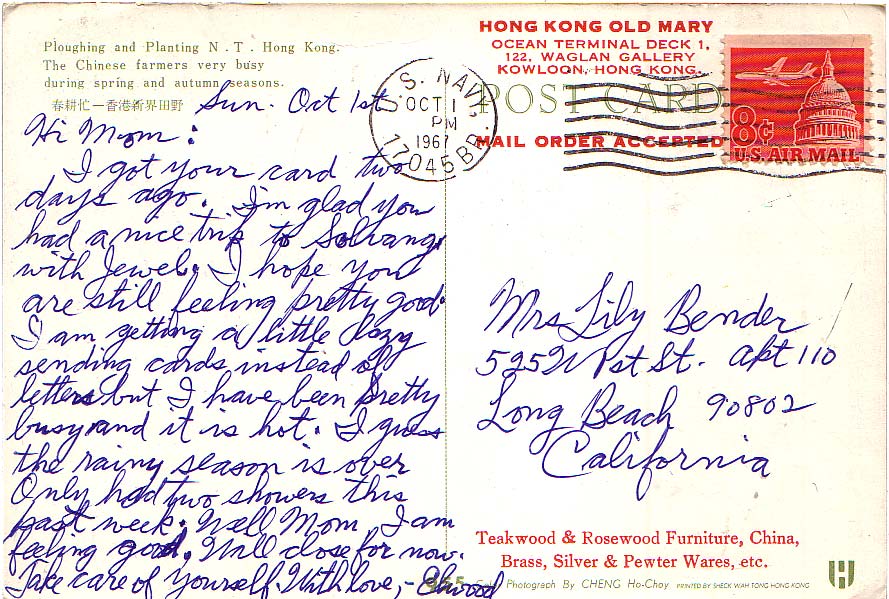 Ploughing and Planting N. T. Hong Kong.
The Chinese farmers very busy
during spring and autumn seasons.
春耕忙一香港新界田野
HONG KONG OLD MARY
OCEAN TERMINAL DECK 1,
122, WAGLAN GALLERY
KOWLOON, HONG KONG.
POST CARD
MAIL ORDER ACCEPTED
U.S. NAVY
OCT 1
PM
1967
17045 BR.
8¢
U.S. AIR MAIL
Sun. Oct 1st
Hi Mom:
I got your card two
days ago. I'm glad you
had a nice trip to Solvang
with Jewel. I hope you
are still feeling pretty good.
I am getting a little lazy
sending cards instead of
letters but I have been pretty
busy and it is hot. I guess
the rainy season is over
Only had two showers this
past week. Well Mom, I am
feeling good. Will close for now.
Take care of yourself. With love,- Elwood
Mrs Lily Bender
525 W 1st St. Apt 110
Long Beach 90802
California
Teakwood & Rosewood Furniture, China,
Brass, Silver & Pewter Wares, etc.
Photograph By CHENG Ho-Choy PRINTED BY SHECK WAH TONG HONG KONG